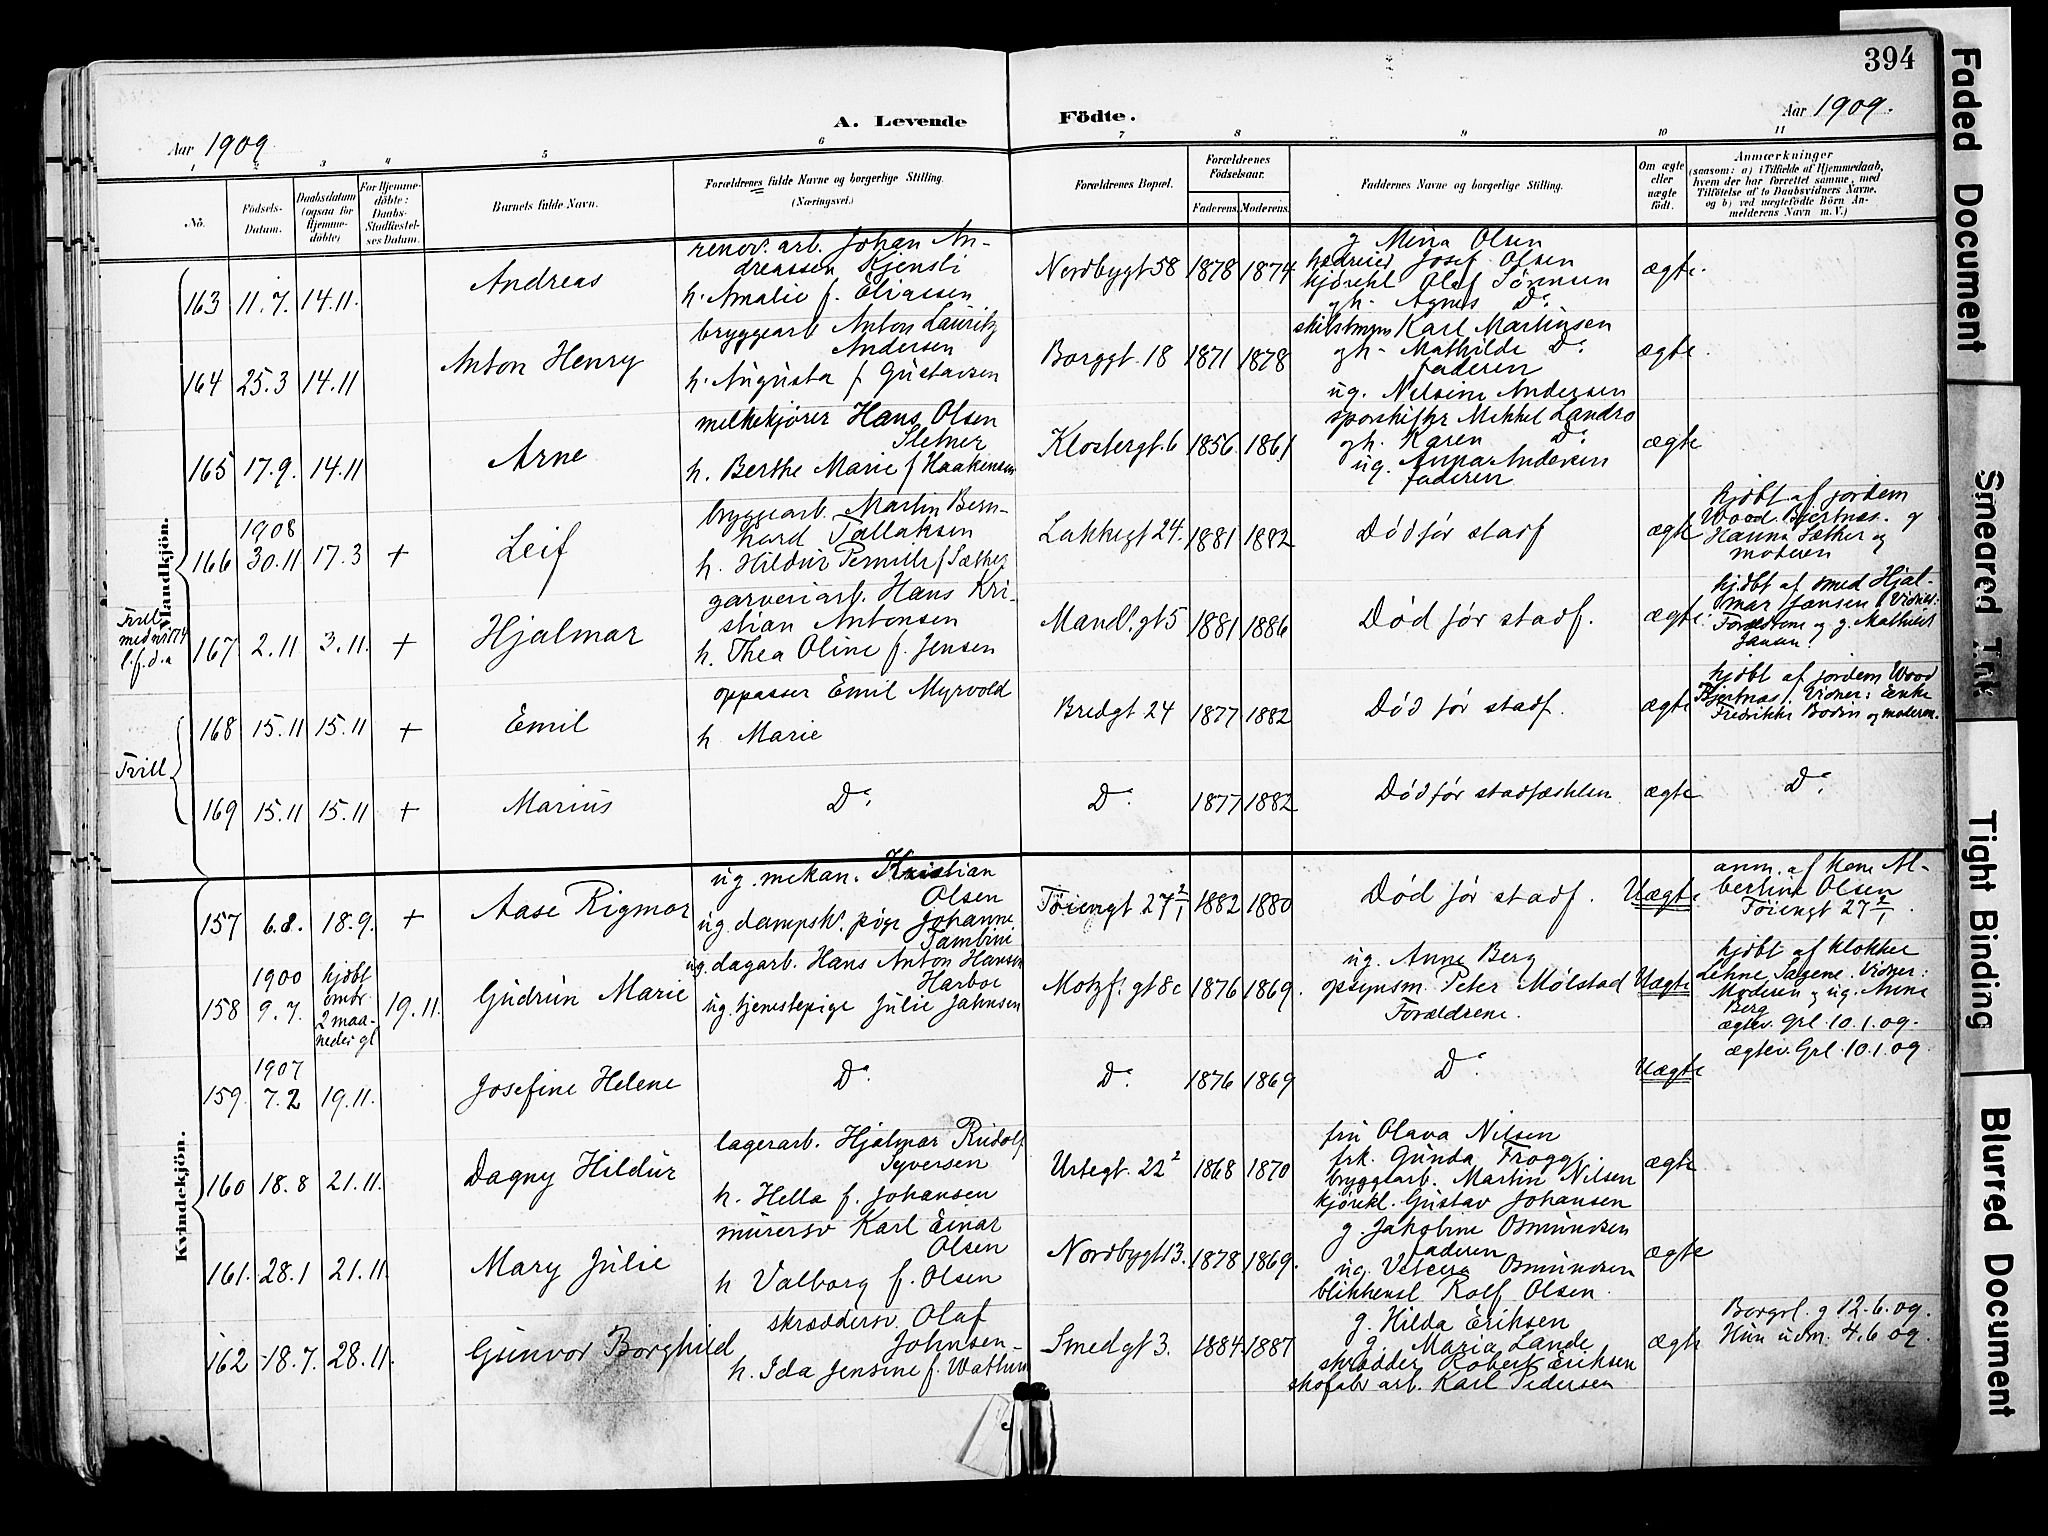 394
A. Levende Födte.
Aar 1909.
Aar 1909.
1 2 3 4 5 6 7 8 9 10 11
No.
Födsels-Datum.
Daabsdatum (ogsaa for Hjemme-döbte)
For Hjemme-döbte: Daabs-Stadfæstel-ses Datum.
Barnets fulde Navn.
Forældrenes fulde Navne og borgerlige Stilling.
(Næringsvei.)
Forældrenes Bopæl.
Forældrenes Födselsaar.
Faderens. Moderens.
Faddernes Navne og borgerlige Stilling.
Om ægte eller uægte födt.
Anmærkninger
(saasom: a) i Tilfælde af Hjemmedaab, hvem der har forrettet samme, med Tilföielse af to Daabsvidners Navne. og b) ved uægtefödte Börn An-melderens Navn m. V.)
Mandkjön.
163 11.7. 14.11. Andreas
renov. arb. Johan An-
dreassen Kjensli
h. Amalie f. Eliassen
Nordbygt 58 1878 1874
g Mina Olsen
Josef Olsen
kjørekl Olaf Sørensen
gh. Agnes Do.
ægte.
164 25.3 14.11 Anton Henry
bryggearb Anton Lauritz
Andersen
h. Augusta f Gustavsen
Borggt. 18 1871 1878
Karl Martinsen
gh- Mathilde Do.
faderen
ug. Nelsine Andersen
ægte.
165 17.9. 14.11 Arne
melkekjører Hans Olsen
Sletner
h. Berthe Marie f Haakensen
Klostergt. 6 1856 1861
sporskifter Mikkel Landro
gh. Karen Do.
ug. Anna Andersen
faderen
ægte
166 1908 30.11 17.3 + Leif
bryggearb. Martin Bern-
hard Tallaksen
h. Hildur Pernille f Sæther
Lakkegt 24. 1881 1882
Død før stadf
ægte
hjdbt af jordem
Wood Bjertnæs. g
Hanna Sæther og
moderen
Tvill
med nr 174
l. f. d. a
167 2.11 3.11. + Hjalmar
garveriarb. Hans Kri-
stian Antonsen
h. Thea Oline f. Jensen
Mandl. gt 5 1881 1886
Død før stadf.
ægte.
hjdbt af smed Hjal-
mar Jansen. Vidner:
Forældrene og g. Mathilde
Jansen.
Tvill
168 15.11 15.11 + Emil
oppasser Emil Myrvold
h Marie
Bredgt 24 1877 1882
Død før stadf.
ægte
hjdbt af jordem Wood
Bjertnæs. Vidner: Enke
Fredrikke Bodin og moderen.
169 15.11 15.11 + Marius
Do. Do. 1877 1882
Død før stadfæstelsen
ægte Do.
Kvindekjön.
157 6.8. 18.9. + Aase Rigmor
ug. mekan. Kristian
Olsen
ug. dampsk. pige Johanne
Tambini
Tøiengt 27 2/1 1882 1880
Død før stadf.
Uægte.
anm. af kone Al-
bertine Olsen
Tøiengt 27 2/1.
158 1900 9.7. hjdbt
omtr
2 maa-
neder gl
19.11. Gudrun Marie
ug. dagarb. Hans Anton Hansen
Harboe
ug. tjenestepige Julie Jahnsen
Motzf. gt 8c 1876 1869.
ug. Anne Berg
opsynsm. Peter Mølstad
Forældrene.
Uægte
hjdbt af klokker
Lehne Sagene. Vidner:
Moderen og ug. Anne
Berg
ægtev. Grl. 10.1.09.
159. 1907 7.2 19.11. Josefine Helene
Do. Do. 1876 1869 Do.
Uægte
ægtev. Grl. 10.1.09
160 18.8 21.11. Dagny Hildur
lagerarb. Hjalmar Rudolf
Syversen
h. Hella f. Johansen
Urtegt. 22 2 1868 1870
fru Olava Nilsen
frk. Gunda Frogg.
bryggearb. Martin Nilsen
kjørekl. Gustav Johansen
ægte
161. 28.1 21.11. Mary Julie
murersv Karl Einar
Olsen
h Valborg f. Olsen
Nordbygt 13. 1878 1869.
g Jakobine Osmundsen
faderen
ug. Osmundsen
blikkensl Rolf Olsen.
ægte
162 18.7. 28.11. Gunvor Borghild
skræddersv. Olaf
Johnsen
h. Ida Jensine f. Wathum
Smedgt 3. 1884 1887
g. Hilda Eriksen
g. Maria Lande
skrædder Robert Eriksen
skofabr arb. Karl Pedersen
ægte
Borgerl. g 12.6.09.
Hun udm. 4.6.09.
Faded Document
Smeared Ink
Tight Binding
Blurred Document